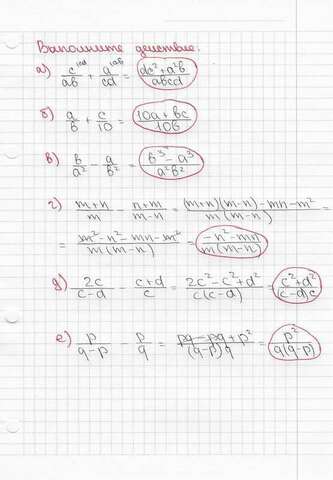 Выполните действие:
а) c/ab + a/cd = (dc² + a²b)/abcd
б) a/b + c/10 = (10a + bc)/10b
в) b/a² - a/b² = (b³ - a³)/a²b²
г) (m+n)/m - (n+m)/(m-n) = ((m+n)(m-n) - mn - m²)/(m(m-n)) =
= (m² - n² - mn - m²)/(m(m-n)) = (-n² - mn)/(m(m-n))
д) 2c/(c-d) - (c+d)/c = (2c² - c² + d²)/(c(c-d)) = (c² + d²)/((c-d)c)
е) p/(q-p) - p/q = (pq - pq + p²)/((q-p)q) = p²/(q(q-p))